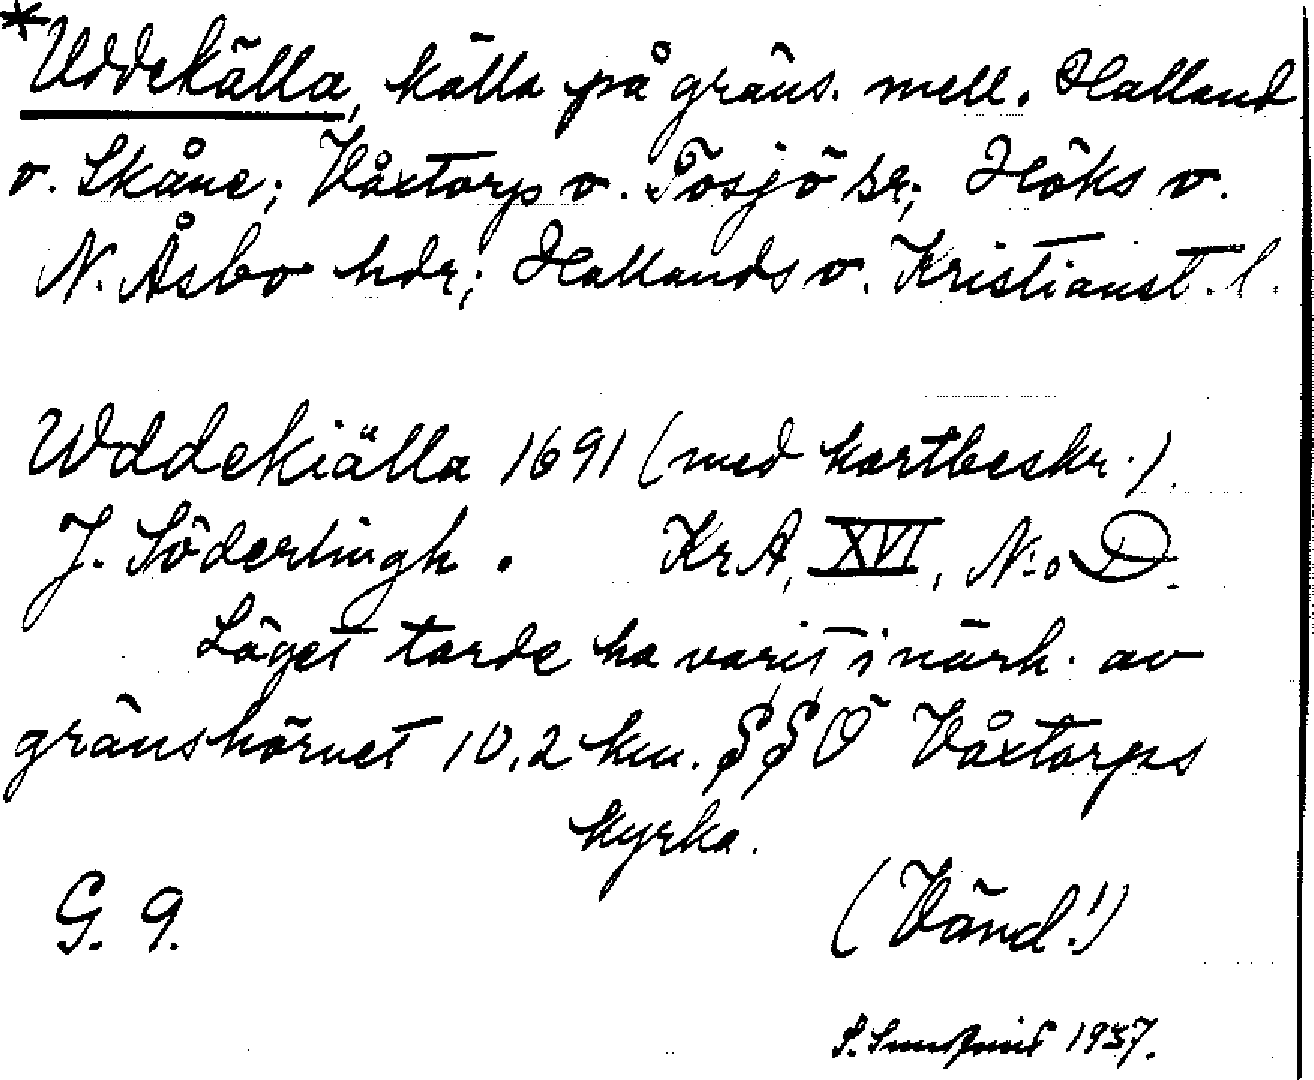 *Uddekälla, källa på gräns. mell. Halland
o. Skåne; Våxtorp o. Tosjö sr; Höks o.
N. Åsbo hdr; Hallands o. Kristianst. l.
Wddekiälla 1691 (med kartbeskr.)
J. Söderlingh. KrA, XVI, N:o D.
Läget torde ha varit i närh. av
gränshörnet 10,2 km. SSÖ Våxtorps
kyrka.
G. 9. (Vänd!)
1937.